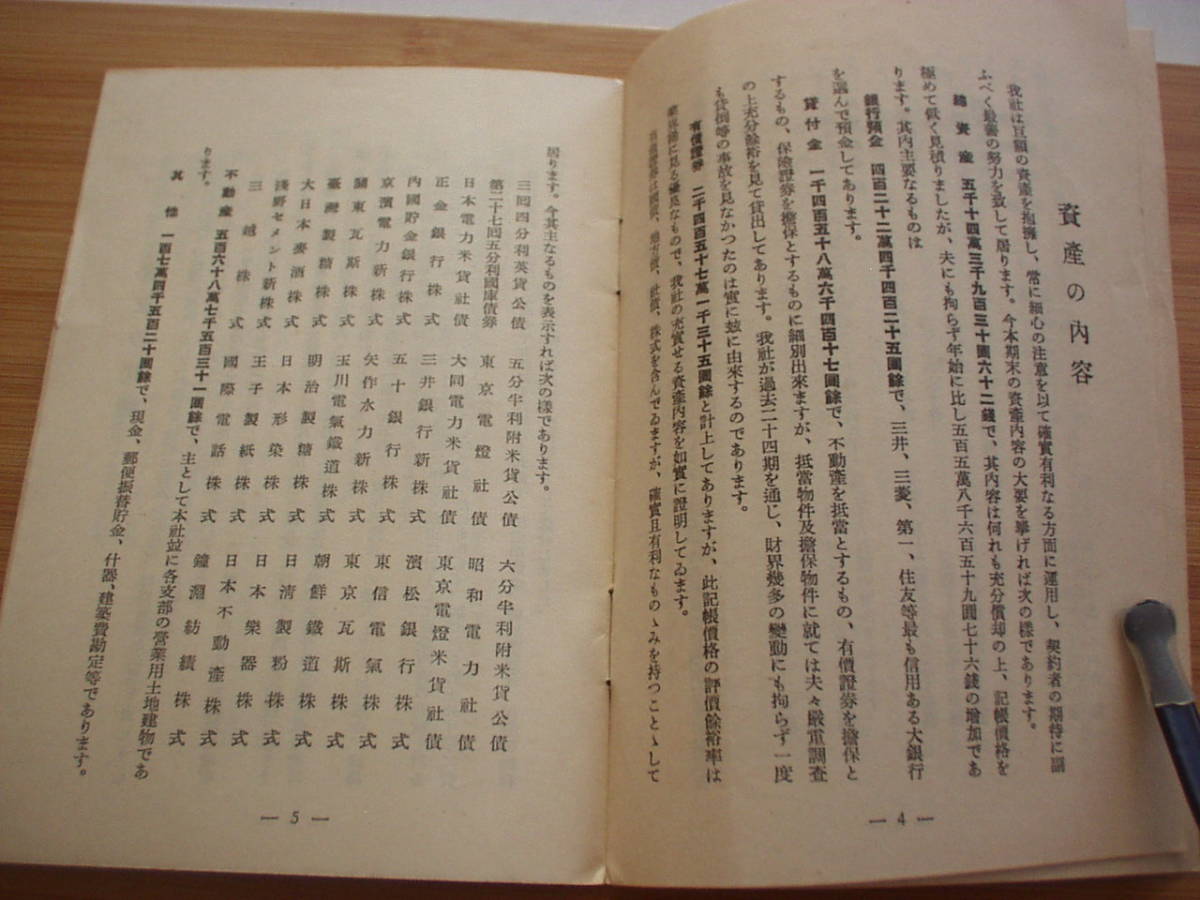 資產の內容
我社は巨額の資產を抱擁し、常に細心の注意を以て確實有利なる方面に運用し、契約者の期待に副
ふべく最善の努力を致して居ります。今本期末の資產內容の大要を擧げれば次の樣であります。
總資產 五千十四萬三千九百三十圓六十二錢で、其內容は何れも充分償却の上、記帳價格を
極めて低く見積りましたが、夫にも拘らず年始に比し五百五萬八千六百五十九圓七十六錢の增加であ
ります。其內主要なるものは
銀行預金 四百二十二萬四千四百二十五圓餘で、三井、三菱、第一、住友等最も信用ある大銀行
を選んで預金してあります。
貸付金 一千四百五十八萬六千四百十七圓餘で、不動產を抵當とするもの、有價證券を擔保と
するもの、保險證券を擔保とするものに細別出來ますが、抵當物件及擔保物件に就ては夫々嚴重調査
の上充分餘裕を見て貸出してあります。我社が過去二十四期を通じ、財界幾多の變動にも拘らず一度
も貸倒等の事故を見なかつたのは實に玆に由來するのであります。
有價證券 二千四百五十七萬一千三十五圓餘と計上してありますが、此記帳價格の評價餘裕率は
業界稀に見る優良なもので、我社の充實せる資產內容を如實に證明してゐます。
有價證券は國債、地方債、社債、株式を含んでゐますが、確實且有利なものゝみを持つことゝして
— 4 —
居ります。今其主なるものを表示すれば次の樣であります。
三回四分利英貨公債 五分半利附米貨公債 六分半利附米貨公債
第二十七回五分利國庫債券 東京電燈社債 昭和電力社債
日本電力米貨社債 大同電力米貨社債 東京電燈米貨社債
正金銀行株式 三井銀行新株式 濱松銀行株式
內國貯金銀行株式 五十銀行株式 東信電氣株式
京濱電力新株式 矢作水力新株式 東京瓦斯株式
關東瓦斯株式 玉川電氣鐵道株式 朝鮮鐵道株式
臺灣製糖株式 明治製糖株式 日淸製粉株式
大日本麥酒株式 日本形染株式 日本樂器株式
淺野セメント新株式 王子製紙株式 日本不動產株式
三越株式 國際電話株式 鐘淵紡績株式
不動產 五百六十八萬七千五百三十一圓餘で、主として本社並に各支部の營業用土地建物であ
ります。
其他 一百七萬四千五百二十圓餘で、現金、郵便振替貯金、什器、建築費勘定等であります。
— 5 —